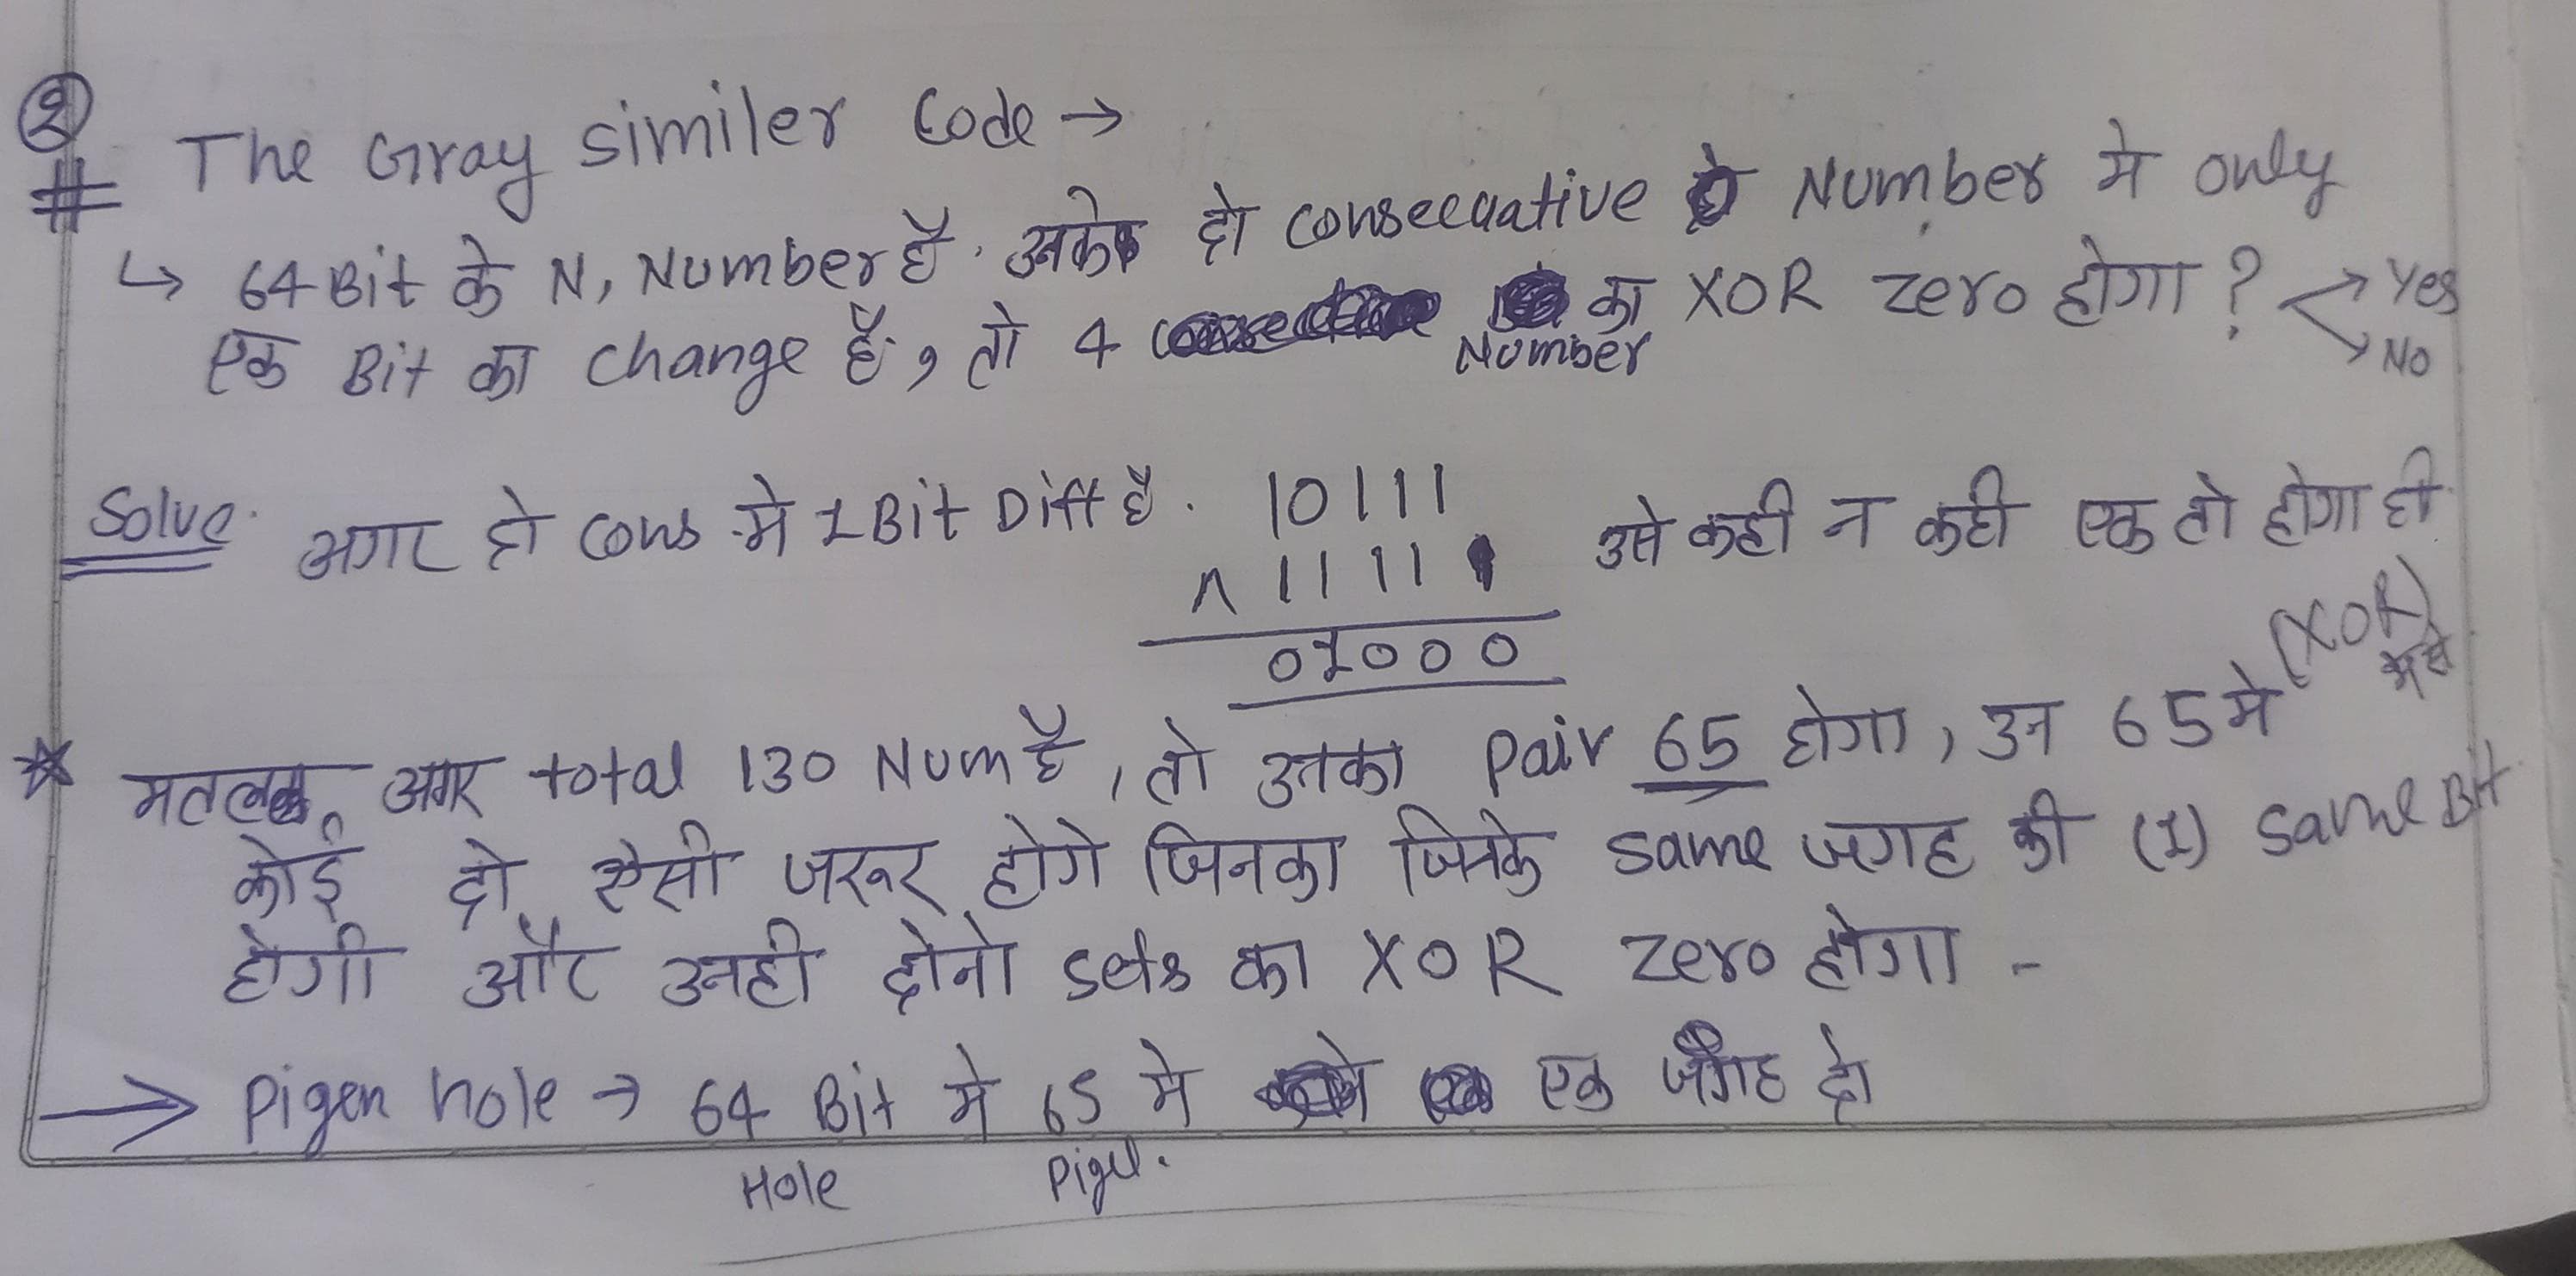 ②
# The Gray similer Code →
↳ 64 Bit के N, Number है. उनके दो consecuative Number मे only
एक Bit का change है, तो 4 Number का XOR zero होगा ? → Yes
→ No
Solve. अगर दो cons मे 1 Bit Diff है. 10111
^ 11111 उसे कही न कही एक तो होगा ही
01000 (XOR)
* मतलब, अगर total 130 Num है, तो उनका pair 65 होगा, उन 65 मे
कोई दो ऐसी जरूर होगे जिनका जिनके same जगह की (1) same Bit
होगी और उनही दोनो sets का XOR zero होगा -
→ Pigen hole → 64 Bit मे 65 मे एक जगह दो
Hole